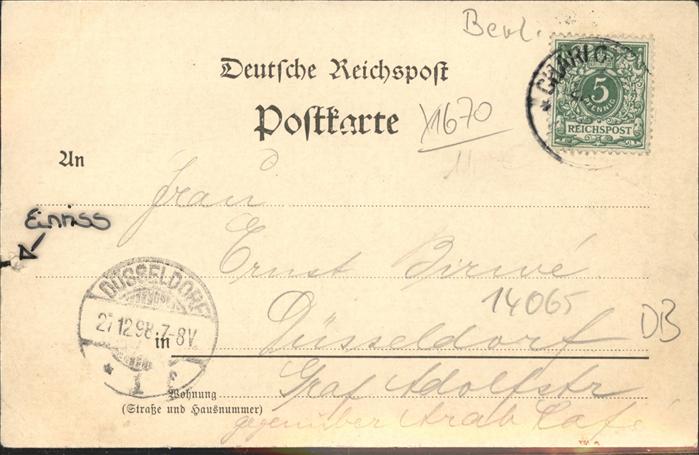 Berl.
Deutsche Reichspost
Postkarte
1670
11
5
PFENNIG
REICHSPOST
An
Frau
Einriss
Ernst Birwé
14065
DÜSSELDORF
27.12.98.7-8V.
* 1 f
in Düsseldorf
DB
Graf Adolfstr
Wohnung
(Straße und Hausnummer)
gegenüber Arab Café